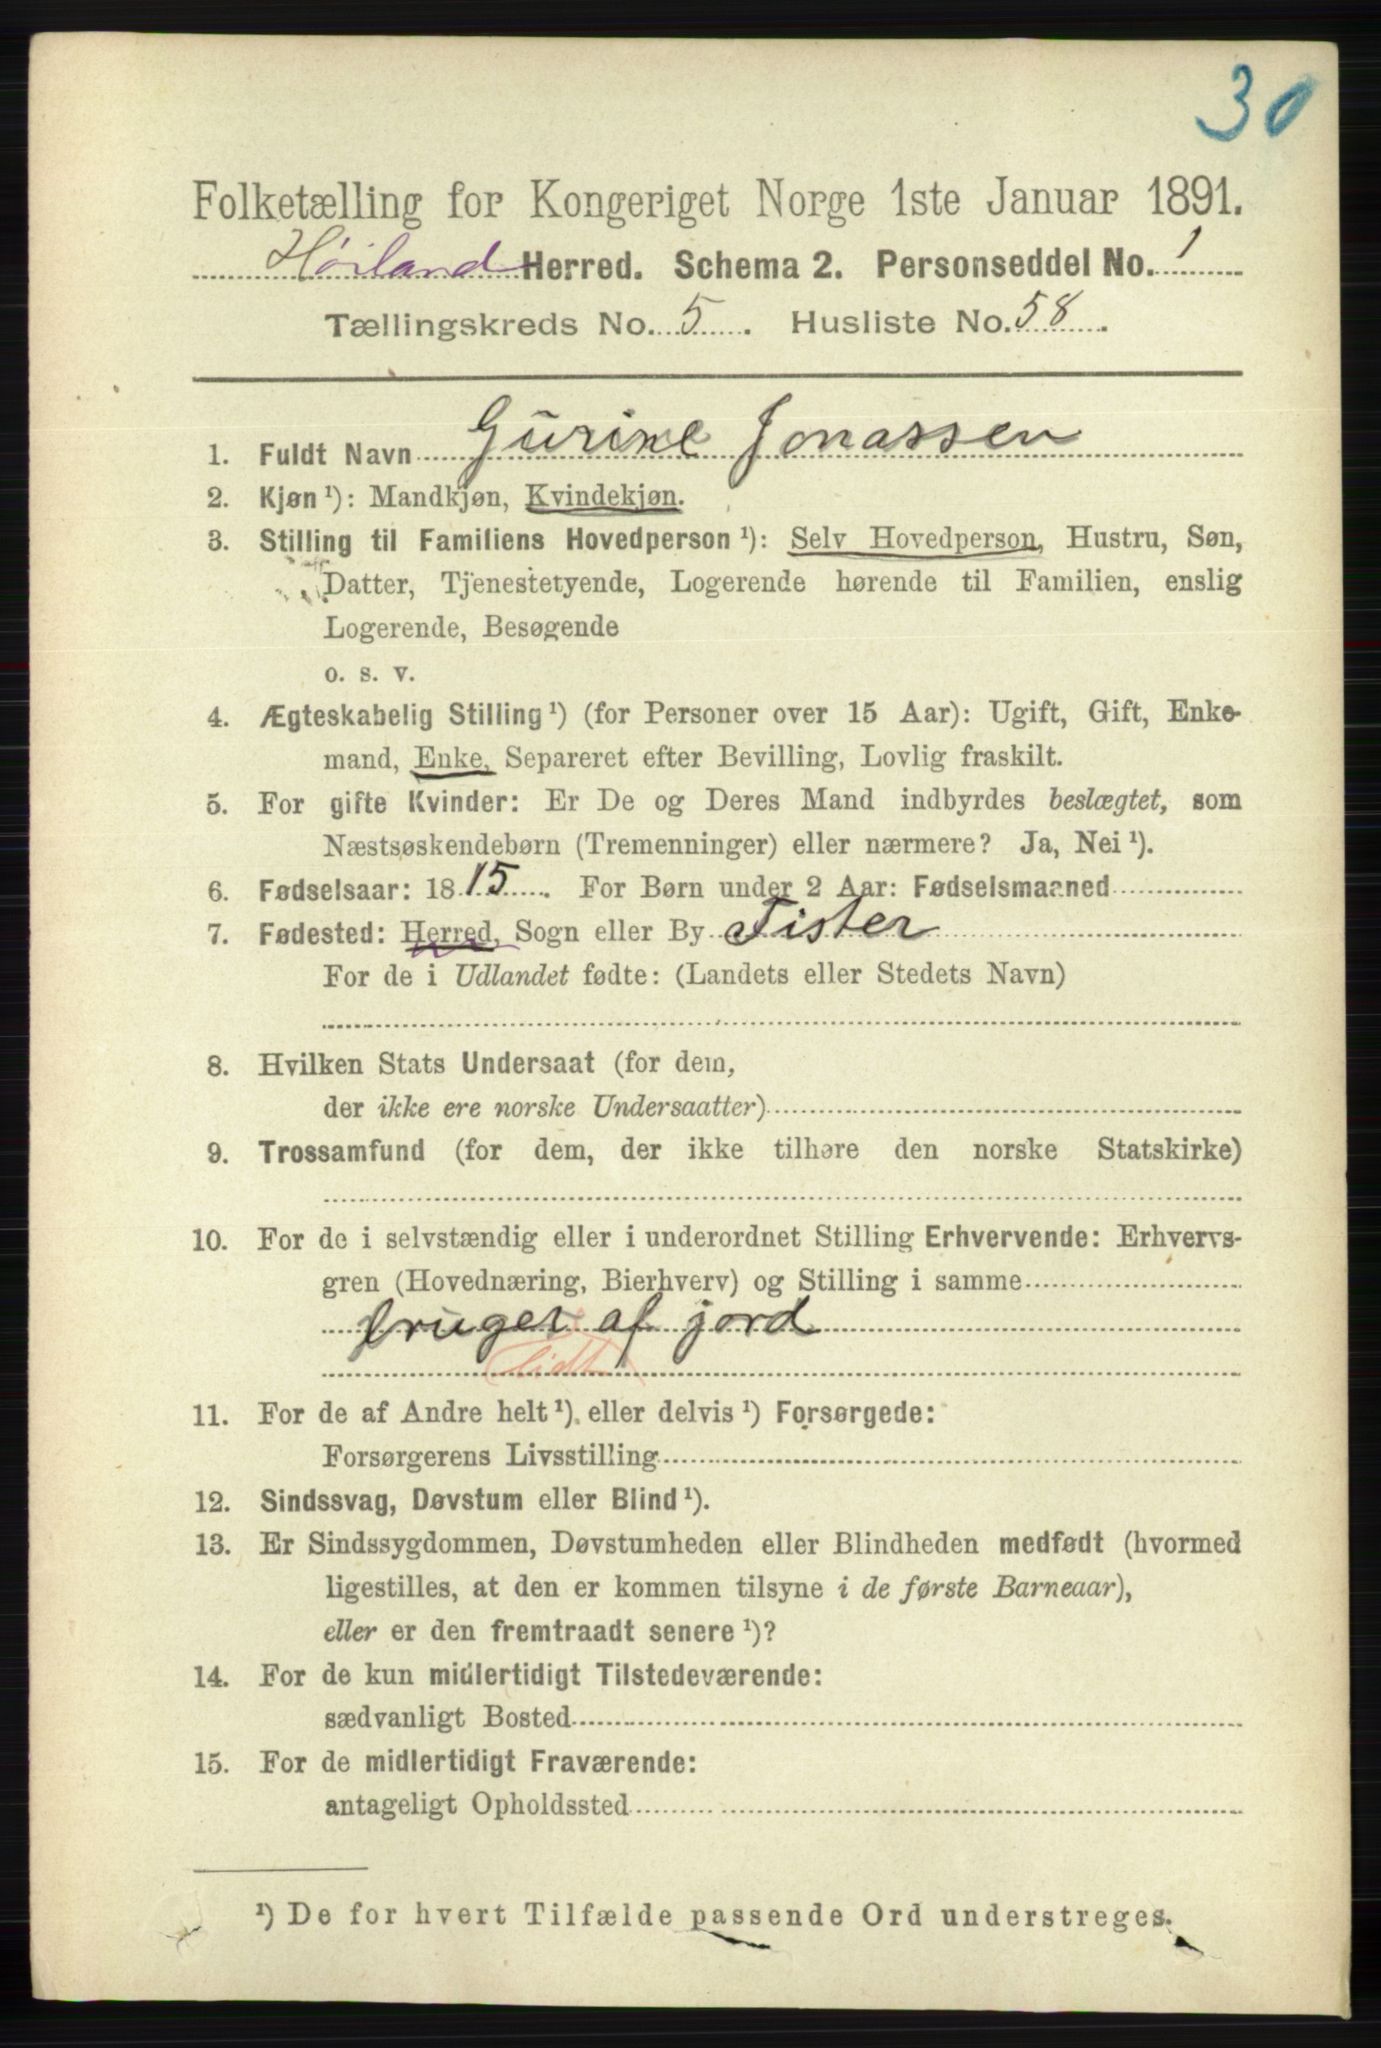 30
Folketælling for Kongeriget Norge 1ste Januar 1891.
Höiland Herred. Schema 2. Personseddel No. 1
Tællingskreds No. 5. Husliste No. 58.
1. Fuldt Navn Gurine Jonassen
2. Kjøn ¹): Mandkjøn, Kvindekjøn.
3. Stilling til Familiens Hovedperson ¹): Selv Hovedperson, Hustru, Søn,
Datter, Tjenestetyende, Logerende hørende til Familien, enslig
Logerende, Besøgende
o. s. v.
4. Ægteskabelig Stilling ¹) (for Personer over 15 Aar): Ugift, Gift, Enke-
mand, Enke, Separeret efter Bevilling, Lovlig fraskilt.
5. For gifte Kvinder: Er De og Deres Mand indbyrdes beslægtet, som
Næstsøskendebørn (Tremenninger) eller nærmere? Ja, Nei ¹).
6. Fødselsaar: 1815. For Børn under 2 Aar: Fødselsmaaned
7. Fødested: Herred, Sogn eller By Fister
For de i Udlandet fødte: (Landets eller Stedets Navn)
8. Hvilken Stats Undersaat (for dem,
der ikke ere norske Undersaatter)
9. Trossamfund (for dem, der ikke tilhøre den norske Statskirke)
10. For de i selvstændig eller i underordnet Stilling Erhvervende: Erhvervs-
gren (Hovednæring, Bierhverv) og Stilling i samme
bruger af jord
lidt
11. For de af Andre helt ¹) eller delvis ¹) Forsørgede:
Forsørgerens Livsstilling
12. Sindssvag, Døvstum eller Blind ¹).
13. Er Sindssygdommen, Døvstumheden eller Blindheden medfødt (hvormed
ligestilles, at den er kommen tilsyne i de første Barneaar),
eller er den fremtraadt senere ¹)?
14. For de kun midlertidigt Tilstedeværende:
sædvanligt Bosted
15. For de midlertidigt Fraværende:
antageligt Opholdssted
¹) De for hvert Tilfælde passende Ord understreges.